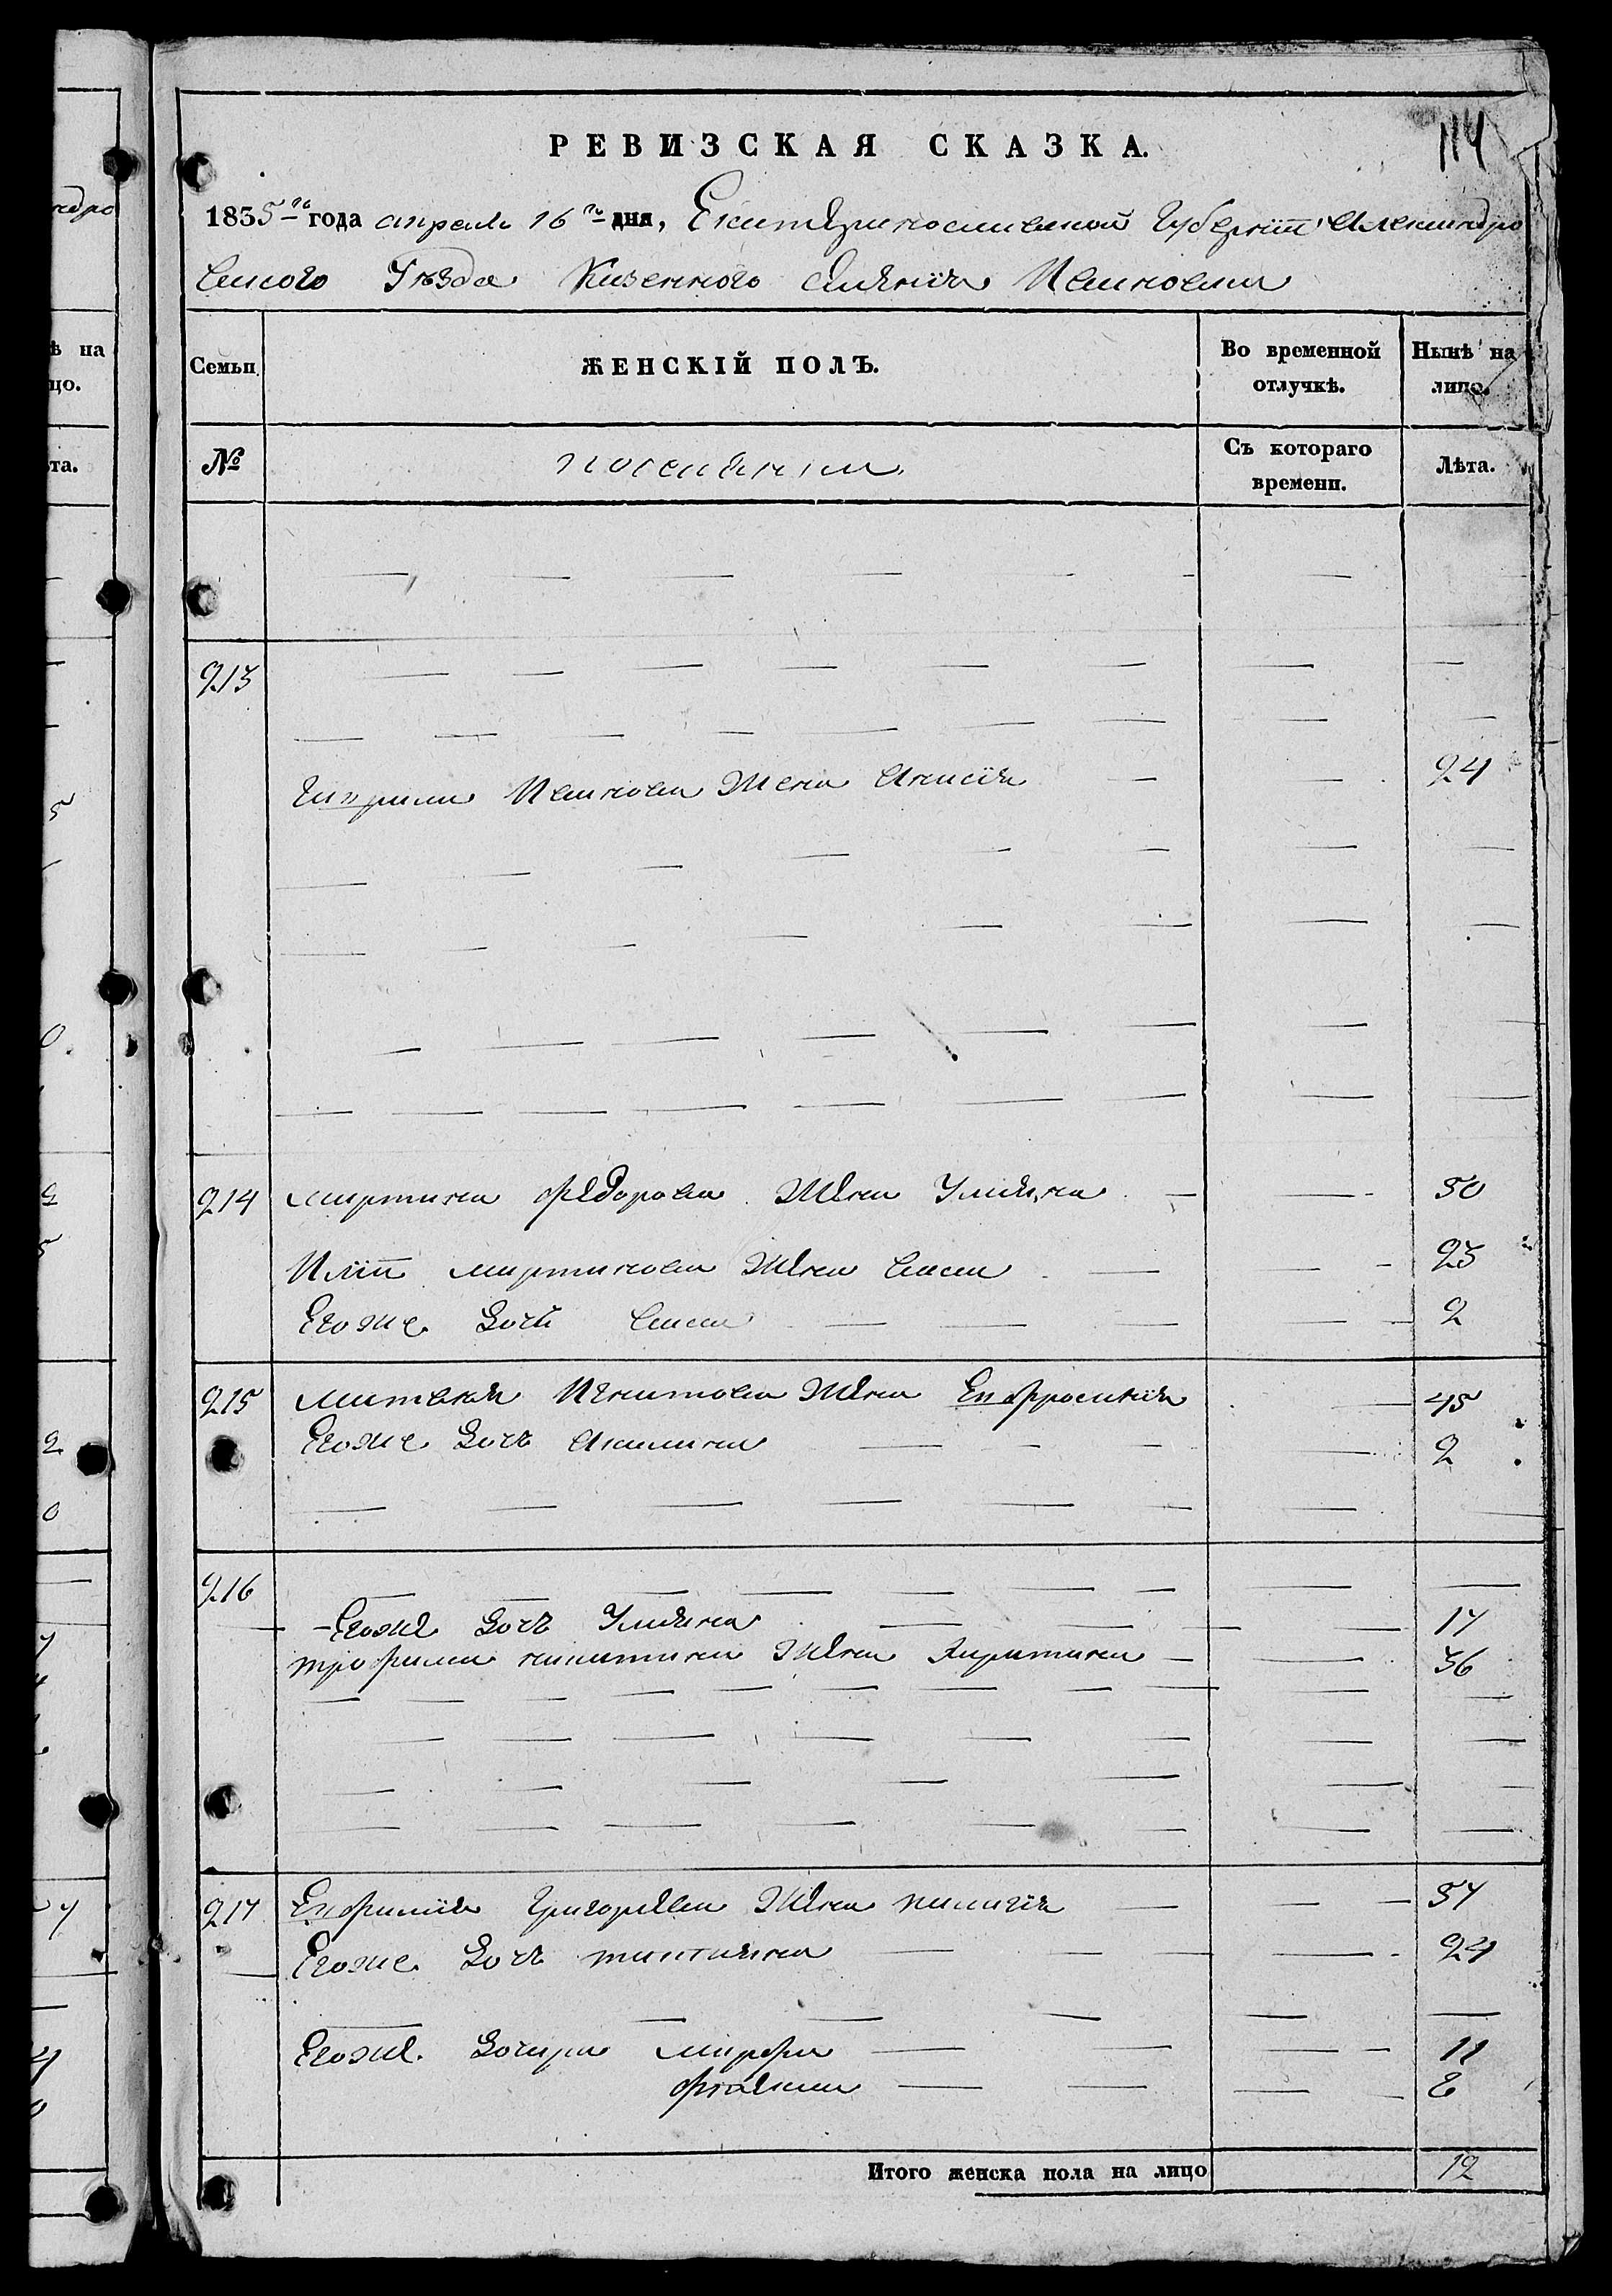 РЕВИЗСКАЯ СКАЗКА.
114
1835 го года апреля 16 го дня, Екатериносливской Губернiи Александро
вского Уѣзда Казенного селенiя Ивановки
Семьи
ЖЕНСКІЙ ПОЛЪ.
Во временной отлучкѣ.
Нынѣ на лицо.
№
поселянки
Съ котораго времени.
Лѣта.
213
Гаврила Иванова Жена Анисiя 24
214 мартина федорова Жена Ульяна 50
Илiи мартинова Жена Васса 23
Егоже Дочь Васса 2
215 матвея Игнатова Жена Евфросинiя 45
Егоже Дочъ Акилина 2
216
Егоже Дочъ Ульяна 17
трофима никитина Жена Харитина 36
217 Евфимия Григорьева Жена пилагiя 57
Егоже Дочъ татияна 24
Егоже Дочери марфа 11
фекла 8
Итого женска пола на лицо 12